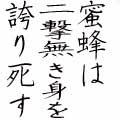 蜜蜂は
二撃無き身を
誇り死す